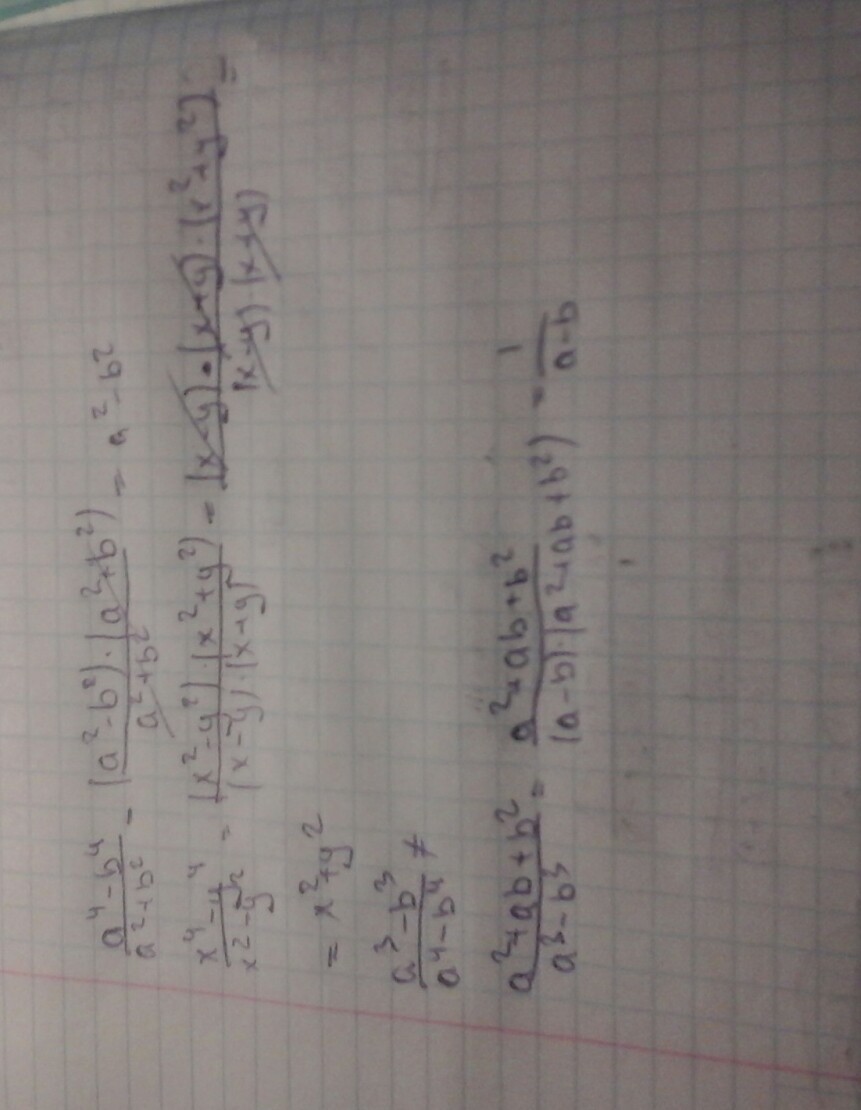 (a⁴-b⁴)/(a²+b²) = ((a²-b²)·(a²+b²))/(a²+b²) = a²-b²
(x⁴-y⁴)/(x²-y²) = ((x²-y²)·(x²+y²))/((x-y)·(x+y)) = ((x-y)·(x+y)·(x²+y²))/((x-y)(x+y)) =
= x²+y²
(a³-b³)/(a⁴-b⁴) ≠
(a²+ab+b²)/(a³-b³) = (a²+ab+b²)/((a-b)·(a²+ab+b²)) = 1/(a-b)